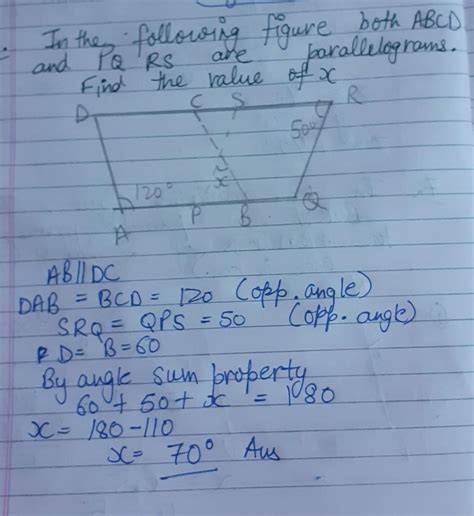 In the following figure both ABCD
and PQ RS are parallelograms.
Find the value of x
D C S R
50°
x
120°
A P B Q
AB||DC
DAB = BCD = 120 (opp. angle)
SRQ = QPS = 50 (opp. angle)
D = B = 60
By angle sum property
60 + 50 + x = 180
x = 180 - 110
x = 70° Ans